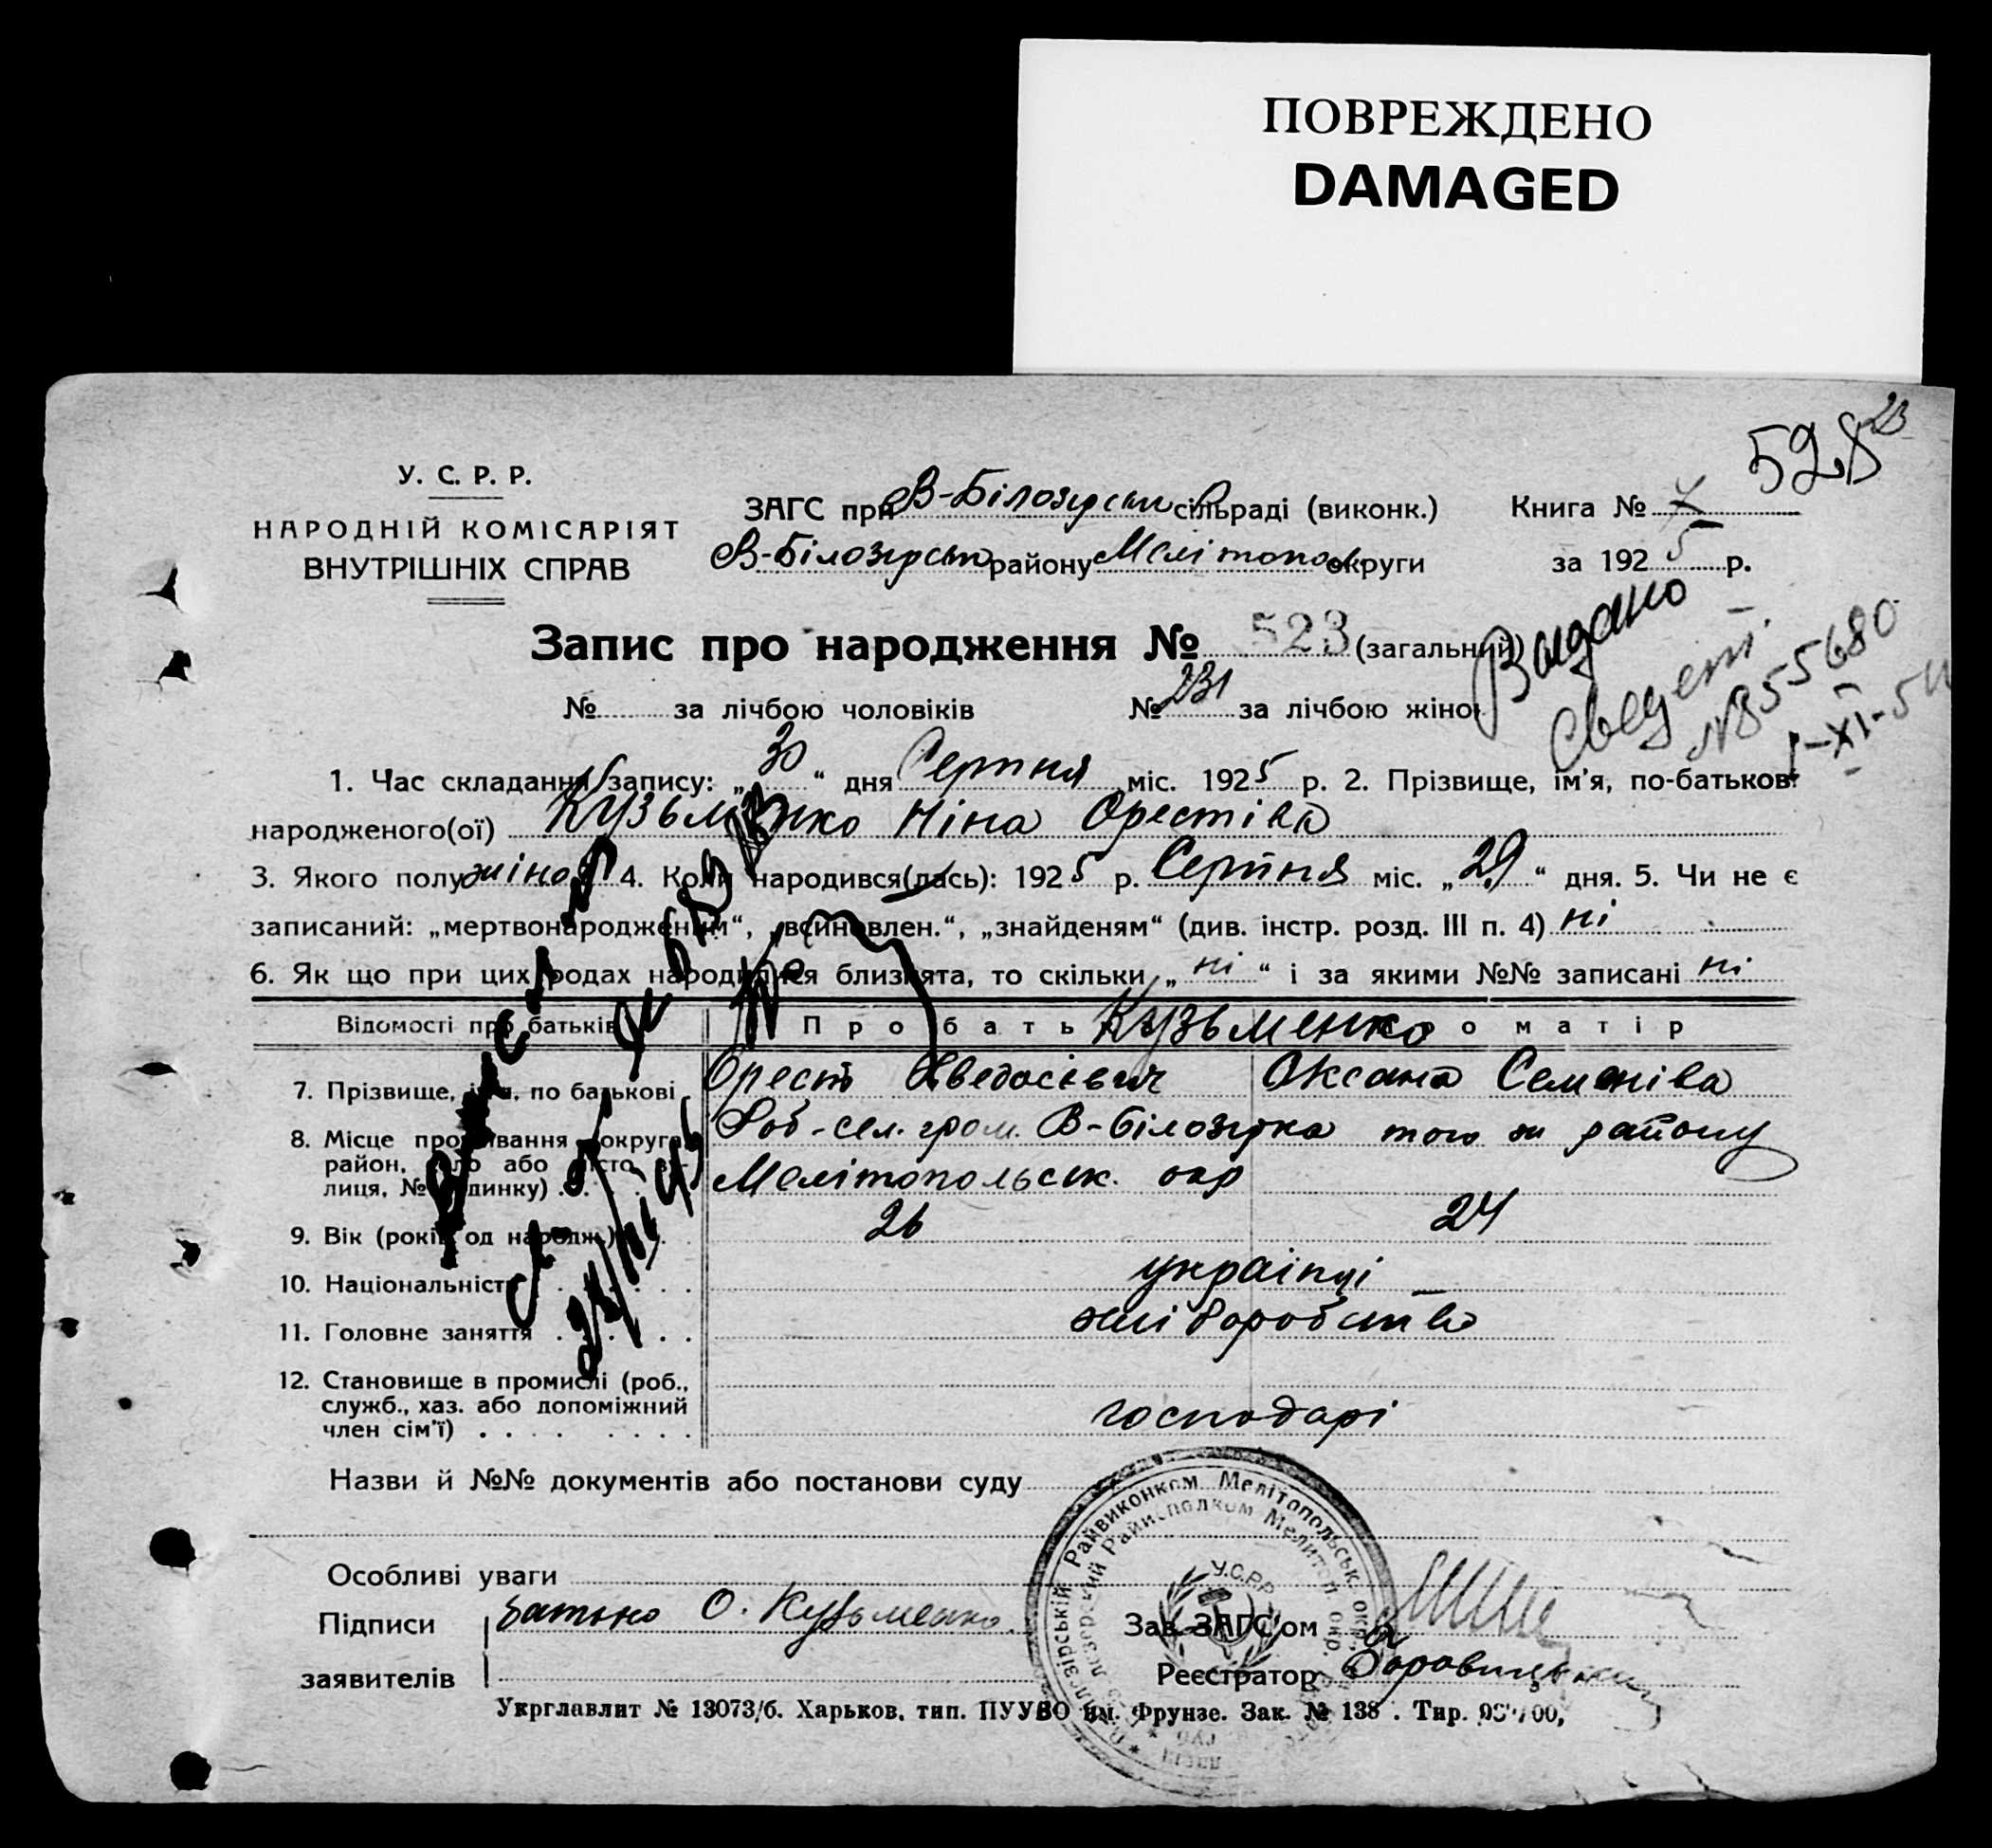 ПОВРЕЖДЕНО
DAMAGED
528
23
У. С. Р. Р.
НАРОДНІЙ КОМІСАРІЯТ
ВНУТРІШНІХ СПРАВ
ЗАГС при В-Білозірськ сільраді (виконк.)
В-Білозірськ району Мелітопол округи
Книга № 7
за 1925 р.
Запис про народження № 523 (загальний)
№ за лічбою чоловіків № 231 за лічбою жінок
Выдано
Свидет.
№ 855680
1. Час складання запису: „30“ дня Серпня міс. 1925 р. 2. Прізвище, ім'я, по-батькові
народженого(ої) Кузьменко Ніна Орестіва
3. Якого полу жіноч 4. Коли народився(лась): 1925 р. Серпня міс. „29“ дня. 5. Чи не є
записаний: „мертвонародженим“, „всиновлен.“, „знайденям“ (див. інстр. розд. III п. 4) ні
6. Як що при цих родах народилися близнята, то скільки „ні“ і за якими №№ записані ні
Відомості про батьків Про батька Кузьменко Про матір
7. Прізвище, ім'я, по батькові Орест Хведосієвич Оксана Семенівa
8. Місце проживання (округа, Роб-сел. гром. В-Білозірка того ж району
район, село або місто, ву-
лиця, № будинку) Мелітопольськ. окр
9. Вік (років од народж.) 26 24
10. Національність українці
11. Головне заняття хліборобство
12. Становище в промислі (роб.,
служб., хаз. або допоміжний
член сім'ї) господарі
Назви й №№ документів або постанови суду
Райвиконком Мелітопольськ. окр.
Райисполком Мелитоп. окр.
У.С.Р.Р.
Особливі уваги
Підписи батько О. Кузьменко
заявителів
Зав. ЗАГС'ом
Реєстратор
Укрглавлит № 13073/б. Харьков, тип. ПУУВО им. Фрунзе. Зак. № 138 . Тир.